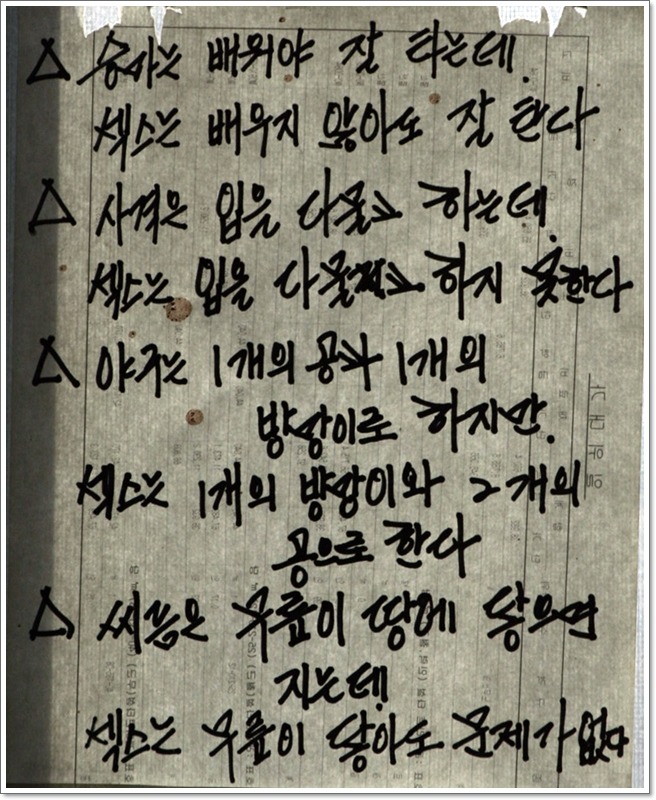 △ 승마는 배워야 잘 타는데.
섹스는 배우지 않아도 잘 한다
△ 사격은 입을 다물고 하는데.
섹스는 입을 다물고 하지 못한다
△ 야구는 1개의 공과 1개의
방망이로 하지만.
섹스는 1개의 방망이와 2개의
공으로 한다
△ 씨름은 무릎이 땅에 닿으면
지는데.
섹스는 무릎이 닿아도 문제가 없다